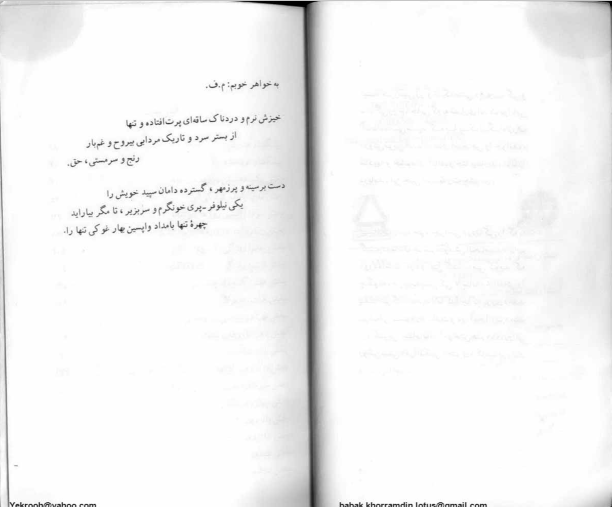 به خواهر خوبم: م.ف.
خیزش نرم و دردناک ساقه‌ای پرت‌افتاده و تنها
از بستر سرد و تاریک مردابی بیروح و غم‌بار
رنج و سرمستی، حق.
دست بر سینه و پرزمهر، گسترده دامان سپید خویش را
یکی نیلوفر-پری خونگرم و سربزیر، تا مگر بیاراید
چهرهٔ تنها بامداد واپسین بهار غوکی تنها را.
Yekrooh@yahoo.com
babak.khorramdin.lotus@gmail.com